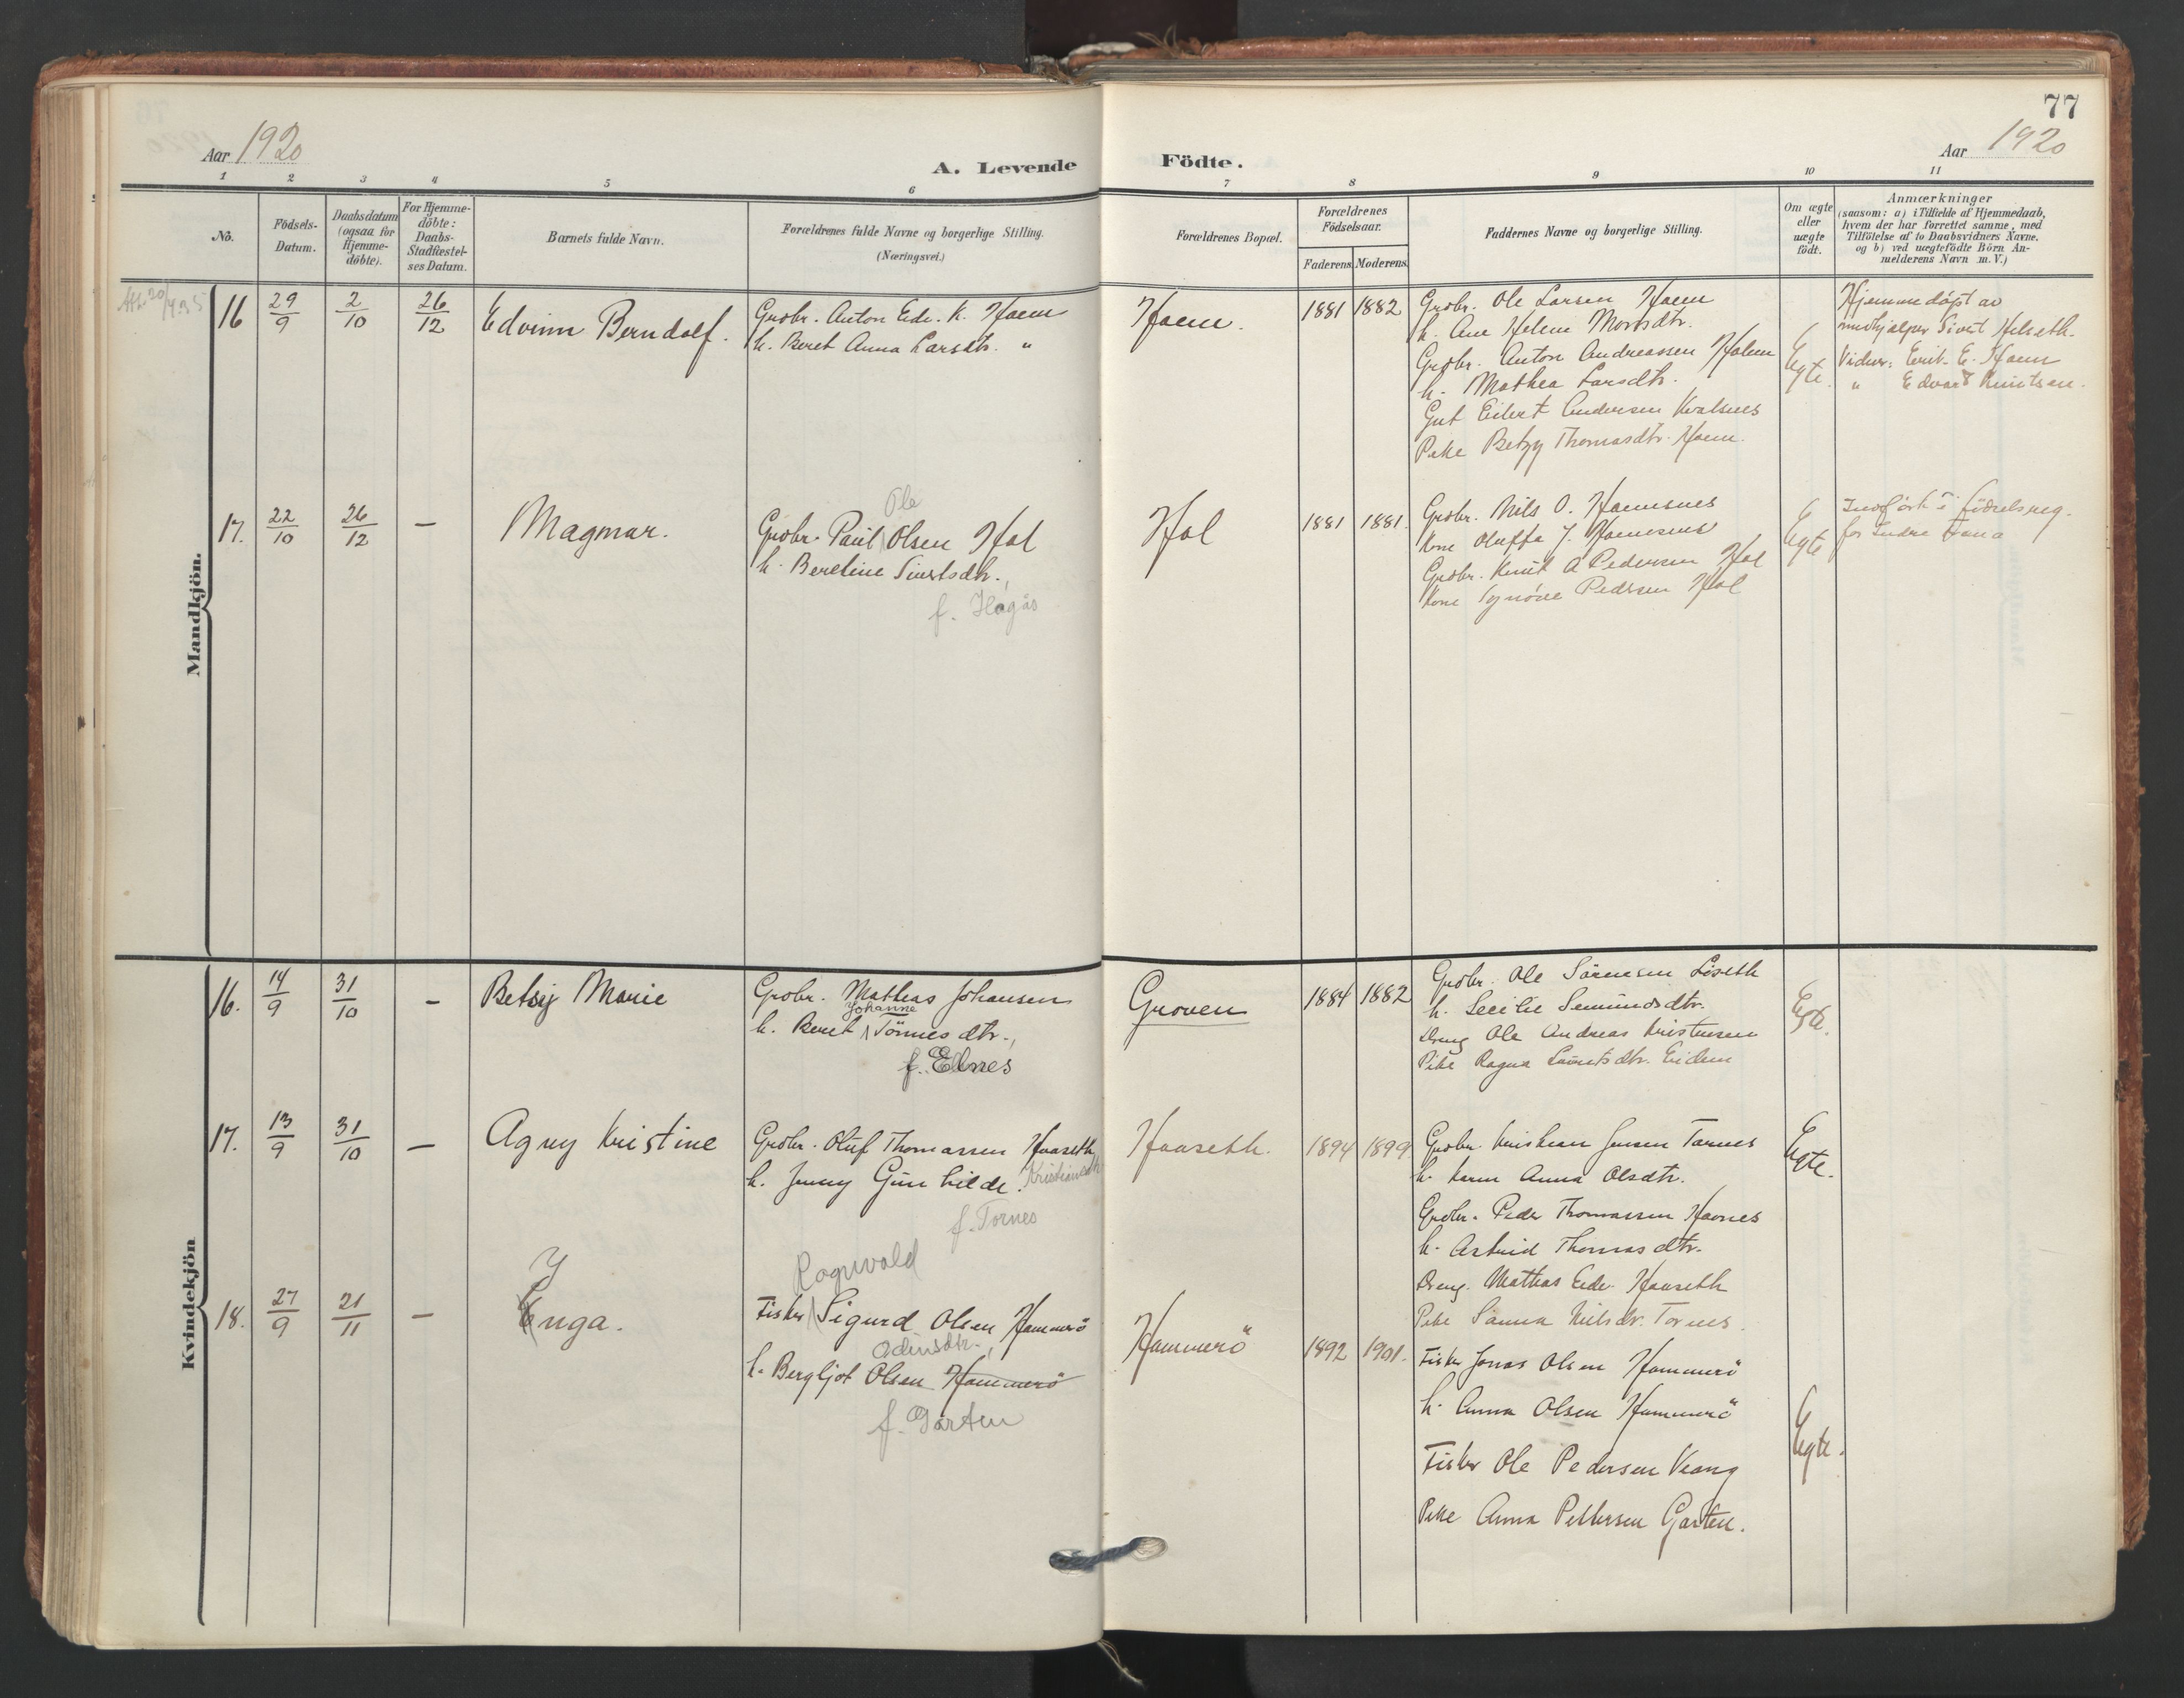 77
Aar 1920
Aar 1920
A. Levende Födte.
1 2 3 4 5 6 7 8 9 10 11
No.
Födsels-
Datum.
Daabsdatum
(ogsaa for
Hjemme-
döbte).
For Hjemme-
döbte:
Daabs-
Stadfæstel-
ses Datum.
Barnets fulde Navn.
Forældrenes fulde Navne og borgerlige Stilling.
(Næringsvei.)
Forældrenes Bopæl.
Forældrenes
Födselsaar.
Faderens. Moderens.
Faddernes Navne og borgerlige Stilling.
Om ægte
eller
uægte
födt.
Anmærkninger
(saasom: a) i Tilfælde af Hjemmedaab,
hvem der har forrettet samme, med
Tilföielse af to Daabsvidners Navne.
og b) ved uægtefödte Börn An-
melderens Navn m. V.)
Mandkjön.
16 29/9 2/10 26/12 Edvinn Berndolf.
Grdbr. Anton Edv. K. Haem
h. Beret Anna Larsdtr. "
Haem.
1881 1882
Grdbr. Ole Larsen Haem
h. Ane Helene Mortsdtr.
Grdbr. Anton Andreassen Holem
h. Mathea Larsdtr.
Gut Eilert Andersen Kvalsnes
Pike Betzy Thomasdtr. Haem.
Egte.
Hjemmedøpt av
medhjelper Sivert Helseth.
Vidner: Erik E. Haem
" Edvart Knutsen.
17. 22/10 26/12 — Magmar.
Ole
Grdbr. Paul Olsen Hol
h. Beretine Sivertsdtr.,
f. Hagås
Hol
1881 1881.
Grdbr. Nils O. Hamsnes
Kone Oluffa J. Hamesnes
Grdbr. Knut A Pedersen Hol
Kone Synöve Pedersen Hol
Egte
Innført i födselsreg.
for Indre Fana
Kvindekjön
16. 14/9 31/10 — Betsij Marie
Grdbr. Mathias Johansen
Johanne
h. Beret Tönnesdtr.,
f. Elnes
Groven
1884 1882
Grdbr. Ole Sörensen Löseth
h. Secilie Semundsdtr.
Dreng Ole Andreas Kristensen
Pike Ragna Lauritsdtr. Eidem
Egte.
17. 13/9 31/10 — Agny Kristine
Grdbr. Oluf Thomassen Haaseth
h. Jenny Gunhilde. Kristiansdtr.
f. Tornes
Haaseth.
1894 1899
Grdbr. Kristian Jensen Tornes
h. Karen Anna Olsdtr.
Grdbr. Peder Thomassen Havnes
h. Astrid Thomasdtr.
Dreng. Mathias Edv. Haaseth
Pike Sanna Nilsdtr. Tornes.
Egte.
Y
18. 27/9 21/11 — Enga.
Ragnvald
Fisker Sigurd Olsen Hammerö
Odinsdtr.,
h. Bergljot Olsen Hammerö
f. Garten
Hammerö
1892 1901.
Fisker Jonas Olsen Hammerö
h. Anna Olsen Hammerö
Fisker Ole Pedersen Veang
Pike Anna Pettersen Garten.
Egte.